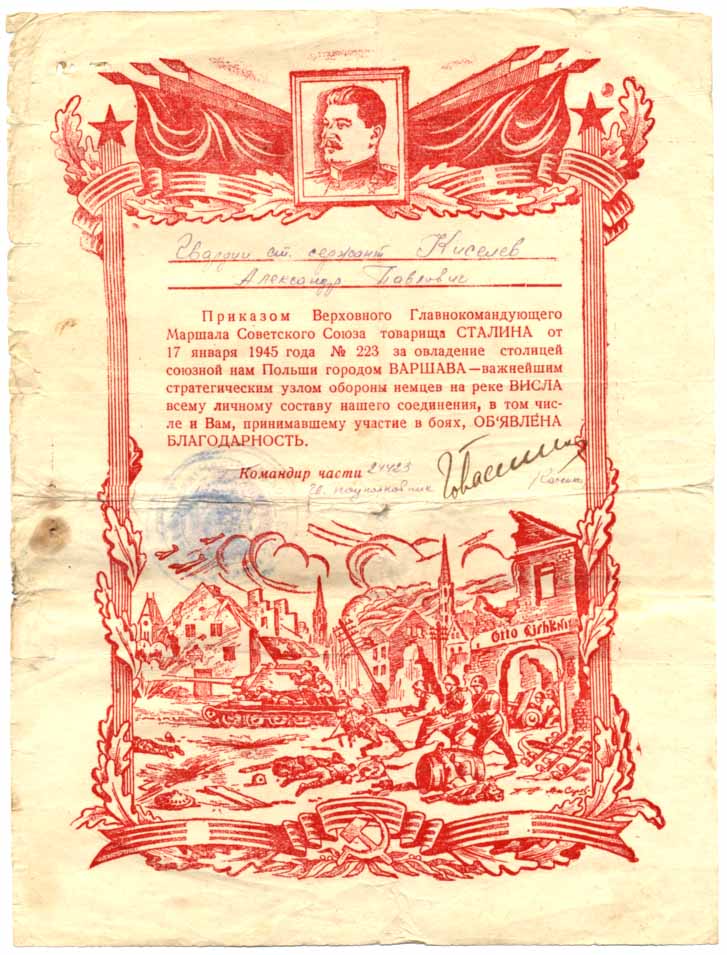 Гвардии ст. сержант Киселев
Александр Павлович
Приказом Верховного Главнокомандующего
Маршала Советского Союза товарища СТАЛИНА от
17 января 1945 года № 223 за овладение столицей
союзной нам Польши городом ВАРШАВА—важнейшим
стратегическим узлом обороны немцев на реке ВИСЛА
всему личному составу нашего соединения, в том чис-
ле и Вам, принимавшему участие в боях, ОБ'ЯВЛЕНА
БЛАГОДАРНОСТЬ.
Командир части 24423
Гв. подполковник
Otto